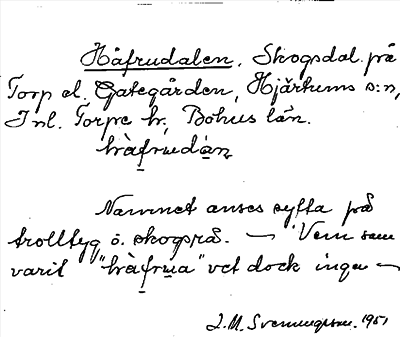 Håfrudalen, Skogsdal på
Torp el. Gategården, Hjärtums s:n,
Inl. Torpe hr, Bohus län.
hàfruedàn
Namnet anses syfta på
trolltyg o. skogsrå. — Vem som
varit "hàfrua" vet dock ingen —
J.M. Svenningson. 1951